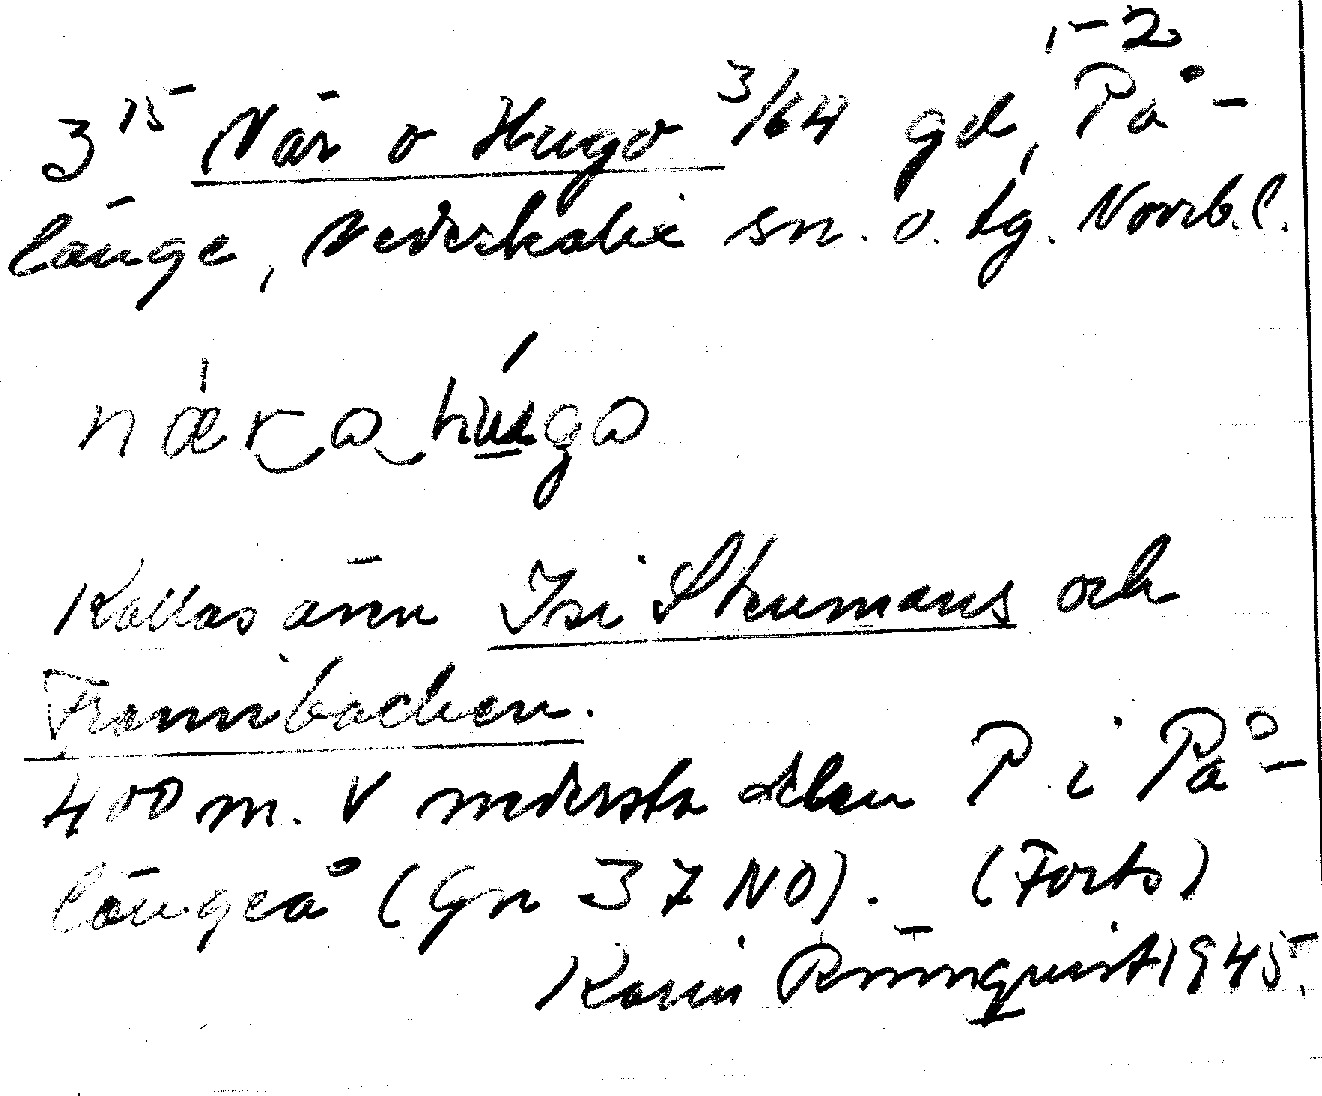 1-2
3¹⁵ När o Hugo 3/64 gd, På-
länge, Nederkalix sn. o. tg. Norrb. l.
næra hugo
Kallas även Isi Strumans och
Frannibacken.
400 m. V nedersta delen P i På-
längeå (Gn 37 NO). (Forts)
Karin Rönnquist 1945.